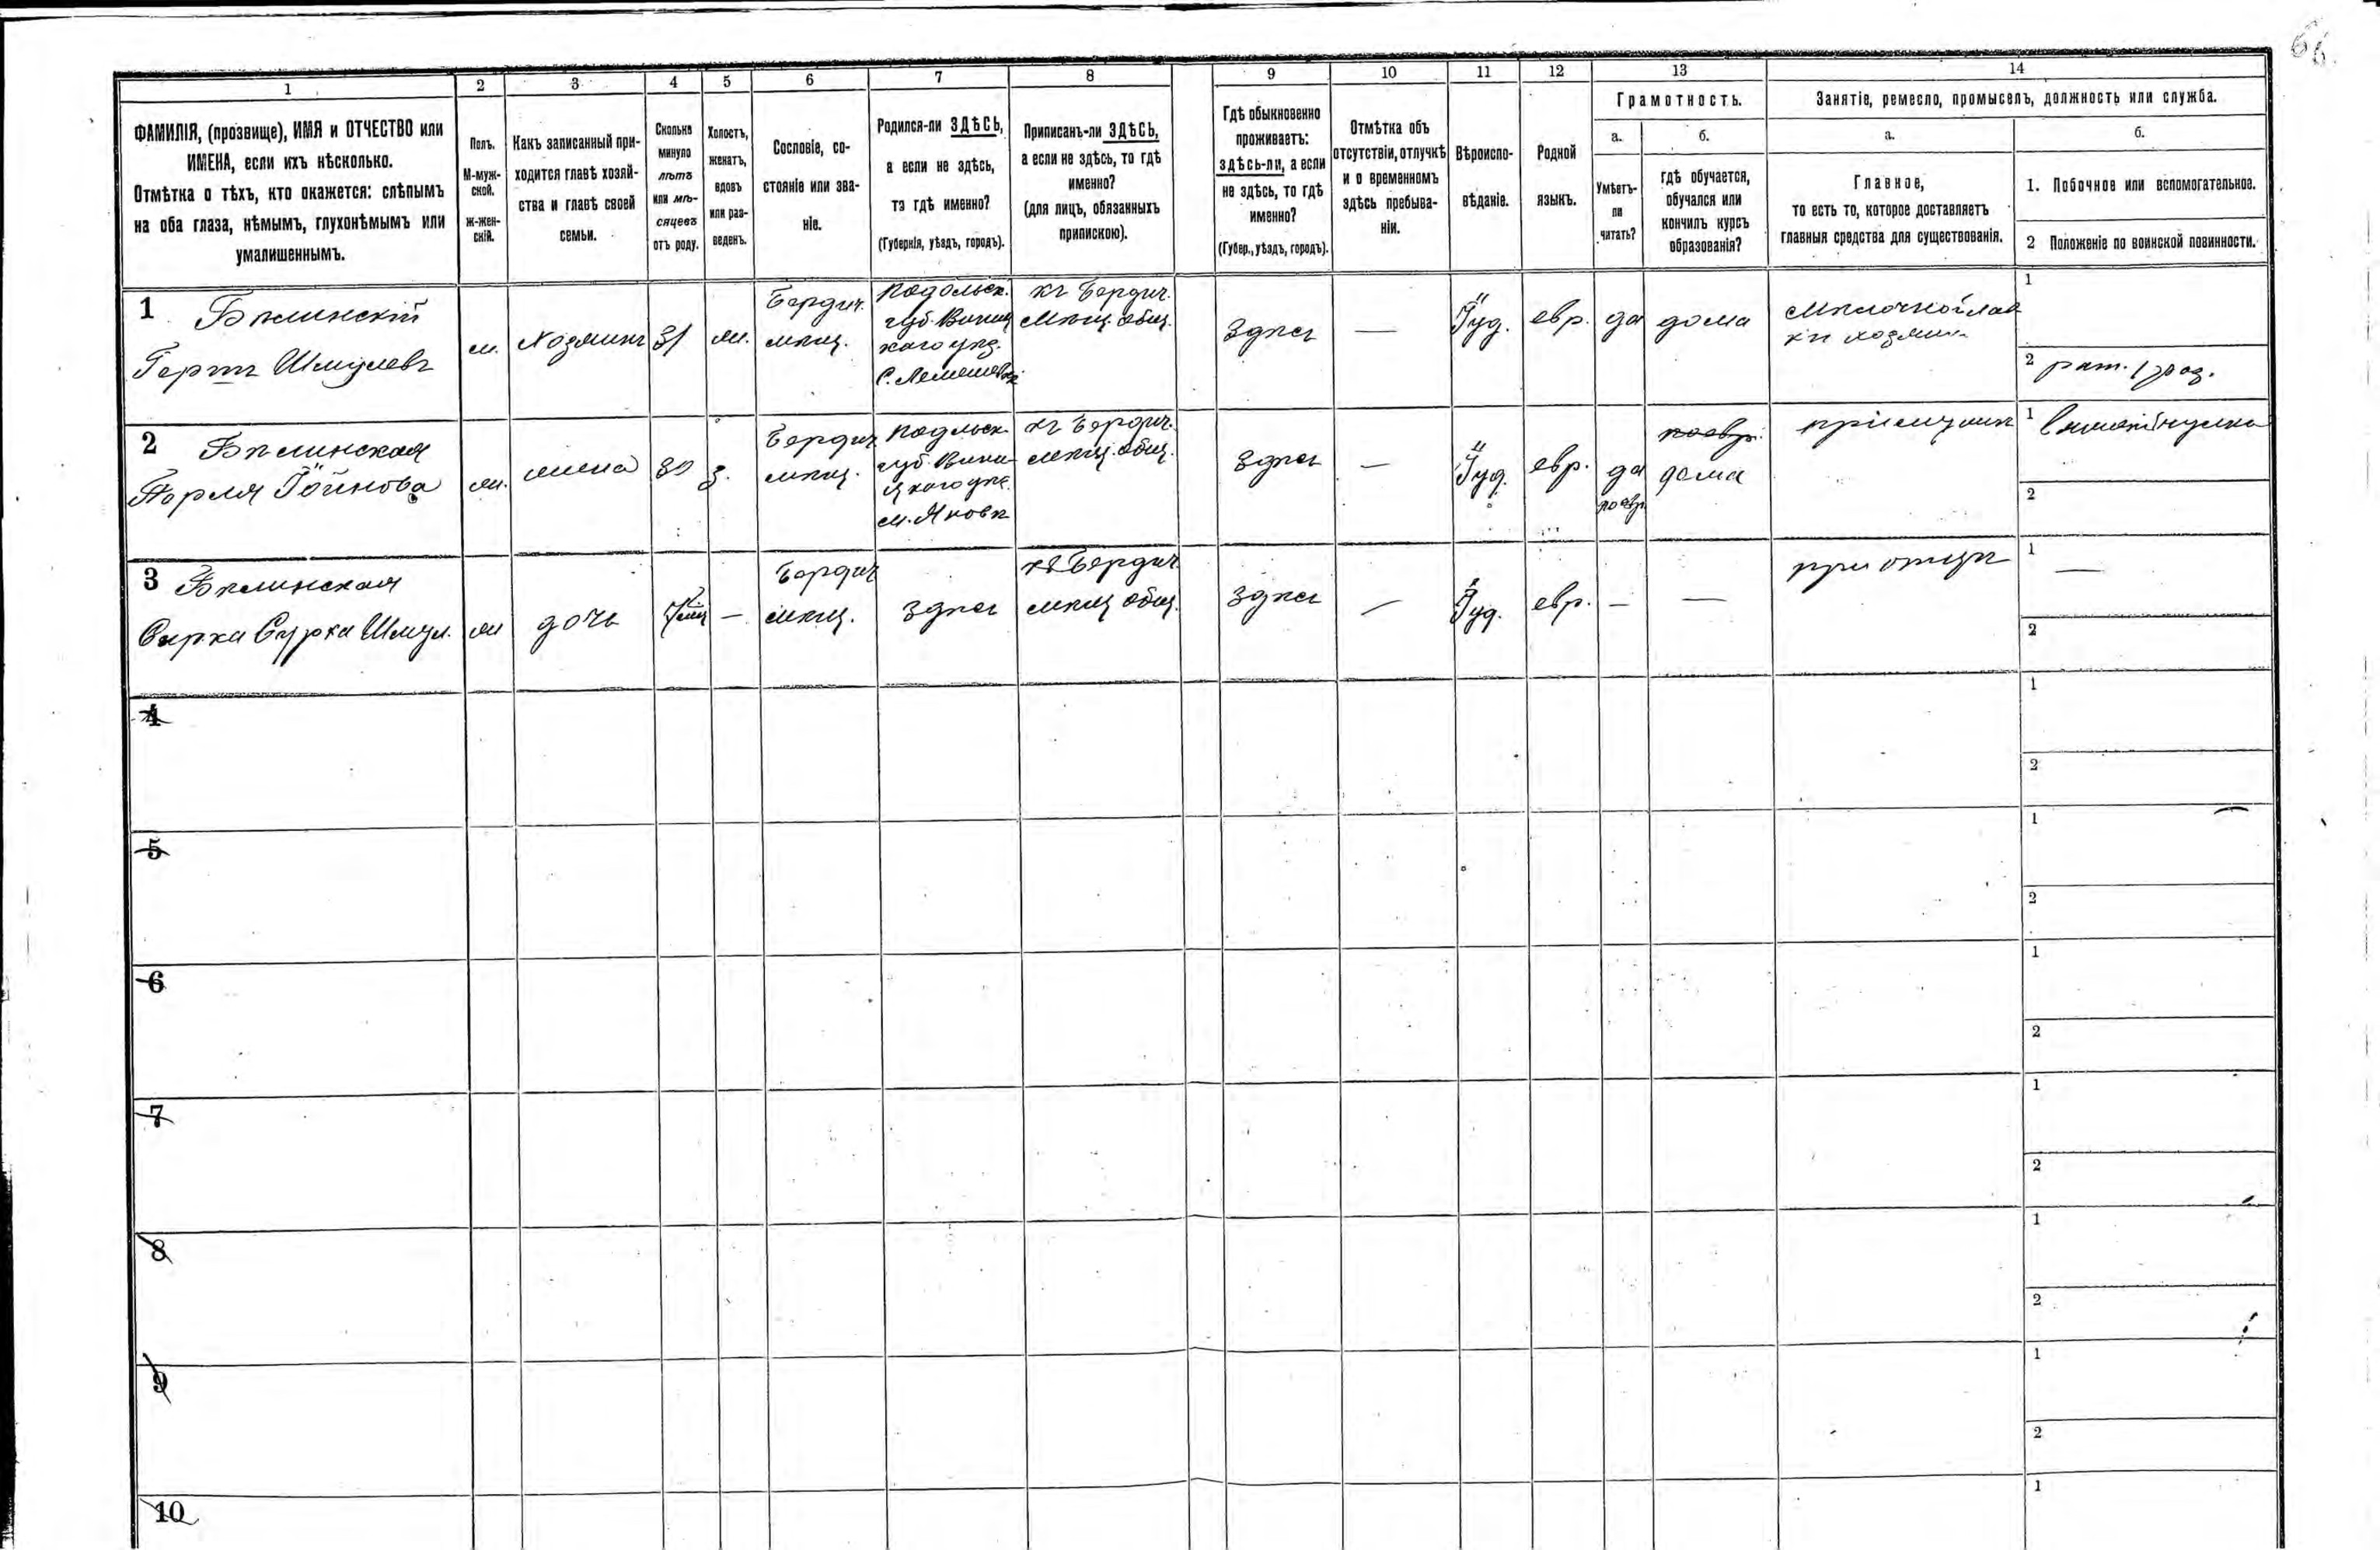 66.
1
2
3
4
5
6
7
8
9
10
11
12
13
14
ФАМИЛІЯ, (прозвище), ИМЯ и ОТЧЕСТВО или
ИМЕНА, если ихъ нѣсколько.
Отмѣтка о тѣхъ, кто окажется: слѣпымъ
на оба глаза, нѣмымъ, глухонѣмымъ или
умалишеннымъ.
Полъ.
М-муж-
ской.
Ж-жен-
скій.
Какъ записанный при-
ходится главѣ хозяй-
ства и главѣ своей
семьи.
Сколько
минуло
лѣтъ
или мѣ-
сяцевъ
отъ роду.
Холостъ,
женатъ,
вдовъ
или раз-
веденъ.
Сословіе, со-
стояніе или зва-
ніе.
Родился-ли ЗДѢСЬ,
а если не здѣсь,
то гдѣ именно?
(Губернія, уѣздъ, городъ).
Приписанъ-ли ЗДѢСЬ,
а если не здѣсь, то гдѣ
именно?
(для лицъ, обязанныхъ
припискою).
Гдѣ обыкновенно
проживаетъ:
здѣсь-ли, а если
не здѣсь, то гдѣ
именно?
(Губер., уѣздъ, городъ).
Отмѣтка объ
отсутствіи, отлучкѣ
и о временномъ
здѣсь пребыва-
ніи.
Вѣроиспо-
вѣданіе.
Родной
языкъ.
Грамотность.
а.
Умѣетъ-
ли
читать?
б.
гдѣ обучается,
обучался или
кончилъ курсъ
образованія?
Занятіе, ремесло, промыселъ, должность или служба.
а.
Главное,
то есть то, которое доставляетъ
главныя средства для существованія.
б.
1. Побочное или вспомогательное.
2 Положеніе по воинской повинности.
1 Бѣлинскій
Гершъ Шмулевъ
м.
хозяинъ
31
ж.
Бердич.
мѣщ.
Подольск.
губ. Винниц
каго уѣз.
с. Лемешовк
къ Бердич.
мѣщ. общ.
здѣсь
—
Іуд.
евр.
да
дома
мѣлочной лав
ки хозяинъ
1
2 рат. 1 раз.
2 Бѣлинская
Перля
ж.
жена
30
з.
Бердич
мѣщ.
Подольск.
губ. Вини
цкаго уѣз.
м. Яновѣ
къ Бердич.
мѣщ. общ.
здѣсь
—
Іуд.
евр.
да
поевр.
поевр.
дома
при мужѣ
1
2
3 Бѣлинская
Сурка Шмул.
ж
дочь
—
Бердич
мѣщ.
здѣсь
къ Бердич
мѣщ общ.
здѣсь
—
Іуд.
евр.
—
—
при отцѣ
1 —
2
4
1
2
5
1
2
6
1
2
7
1
2
8
1
2
9
1
2
10
1